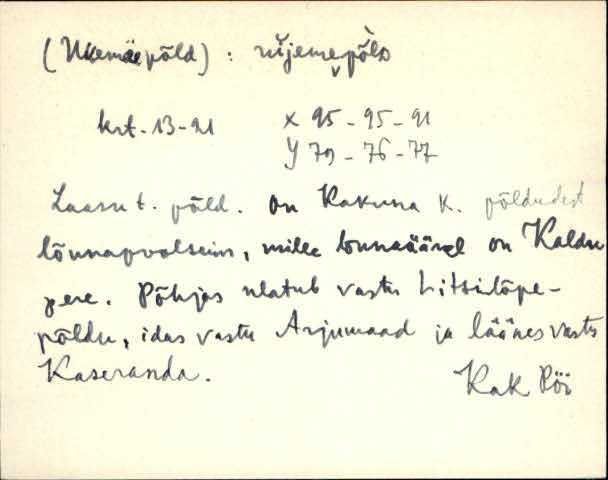 (Ukemäepõld) : ùjemepõlo
krt. 13-21 X 95-95-91
Y 79-76-77
Laasu t. põld. on Kakuna k. põldudest
lõunapoolseim, mille lõunaäärel on Kaldu
pere. Põhjas ulatub vastu Litsilõpe-
põldu, idas vastu Arjumaad ja läänes vastu
Kaseranda.
Kak Põi